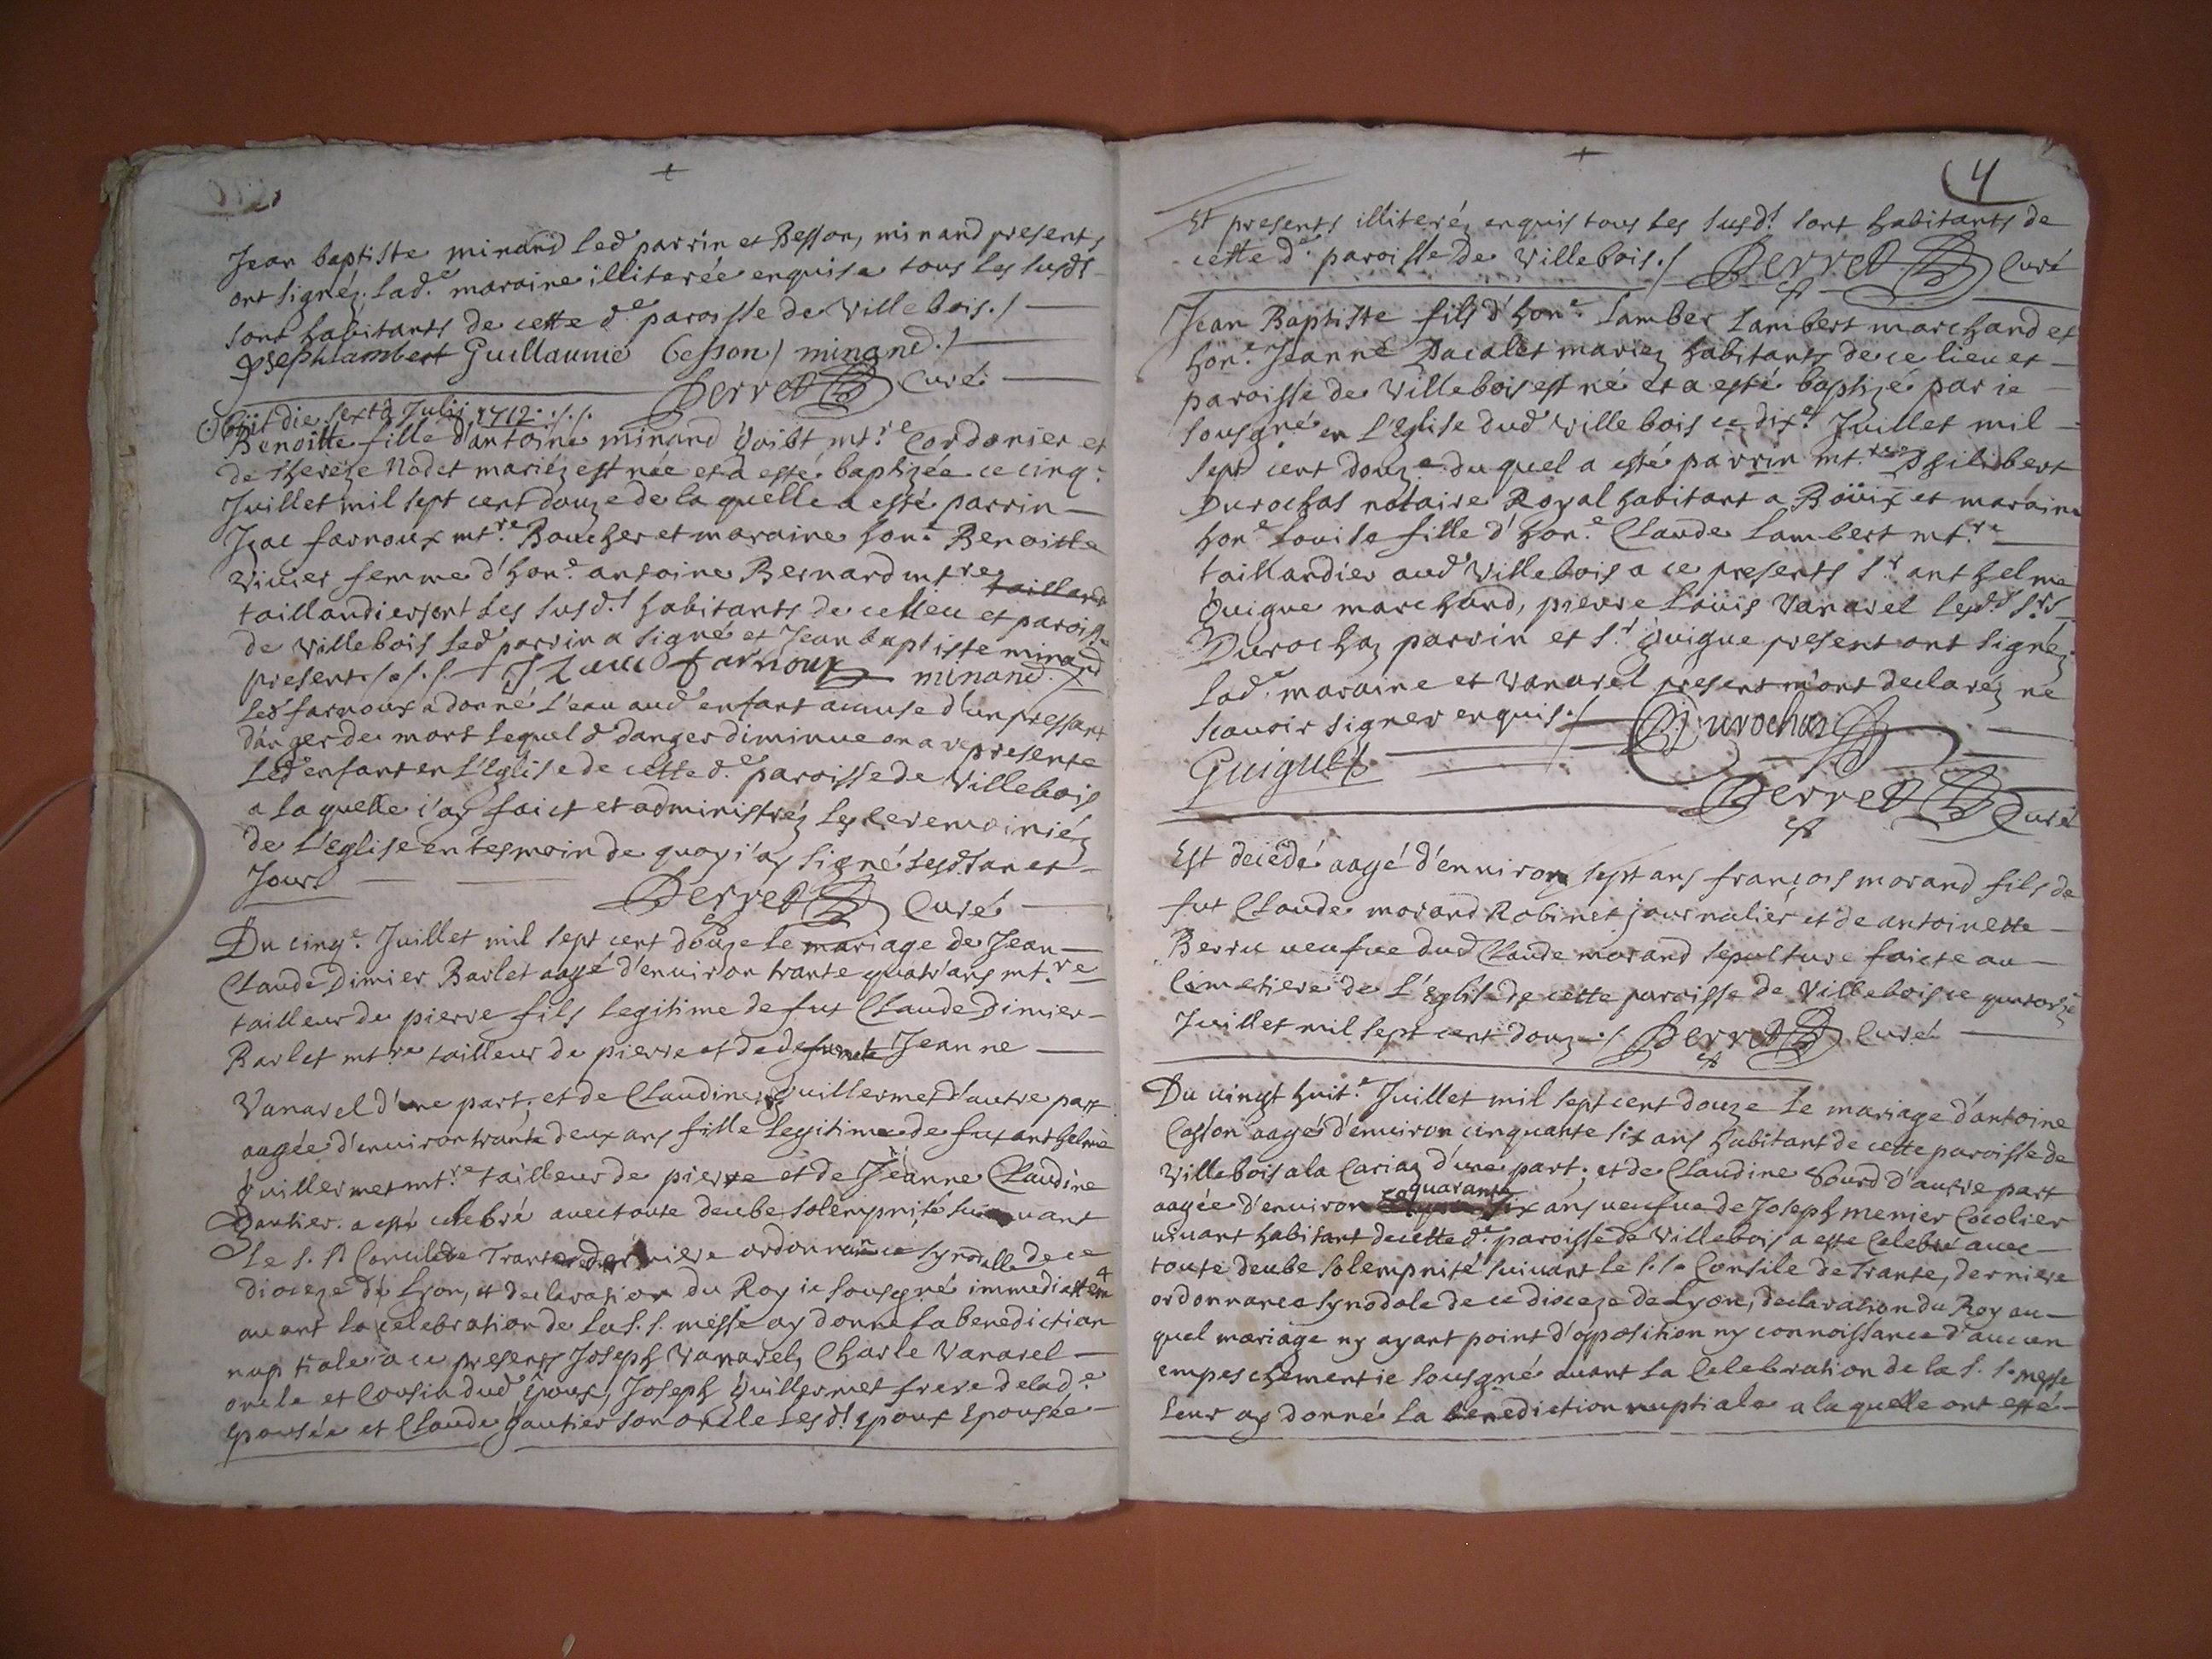 Jean baptiste minand led parrin et Besson, minand presents
ont signéz. lad.e maraine illiterée enquise tous les susd.s
sont habitants de cette d.e paroisse de Villebois./
Joseph lambert Guillaume besson / minand./
Perret Curé
Obiit die sexta Julii 1712
Benoitte fille d'antoine minand Goibt mt.re Cordonier et
de Thereze Nodet mariéz est née et a esté baptizée ce cinq.e
Juillet mil sept cent douze de la quelle a esté parrin
Izac farnoux mt.re Boucher et maraine hon.e Benoitte
Vivier femme d'hon.e antoine Bernard mt.re tailland
taillandier sont les susd.s habitants de ce lieu et paroisse
de Villebois led parrin a signé et Jean baptiste minand
present ./. Izaac farnoux minand.
led farnoux a donné l'eau aud enfant a cause d'un pressant
danger de mort lequel d danger diminue on a represente
led enfant en l'Eglise de cette d.e paroisse de Villebois
a la quelle i'ay faict et administréz les ceremoiniéz
de l'Eglise en tesmoin de quoy i'ay signé lesd.s an et
Jour
Perret Curé
Du cinq.e Juillet mil sept cent douze le mariage de Jean
Claude Dimier Barlet aagé d'environ trante quatr'ans mt.re
tailleur de pierre fils legitime de fut Claude Dimier
Barlet mt.re tailleur de pierre et de defuncte Jeanne
Vanarel d'une part; et de Claudine Guillermet d'autre part
aagée d'environ trante deux ans fille legitime de fut anthelme
Guillermet mt.re tailleur de pierre et de Jeanne Claudine
Gautier. a esté celebré avec toute deube solempnité suivant
le s. s. Concile de Trante derniere ordonnance synodalle de ce
dioceze de Lyon, et declaration du Roy ie sousigné immediatem.t
avant la celebration de la s. s. messe ay donné la benediction
nuptiale a ce presents Joseph Vanarel, Charle Vanarel
oncle et Cousin dud Epoux, Joseph Guillermet frere de lad.e
Epousée et Claude Gautier son oncle lesd.s Epoux Epousée
4
Et presents illiteréz enquis tous les susd.s sont habitants de
cette d.e paroisse de Villebois./ Perret Curé
Jean Baptiste fils d'hon.e Lamber Lambert marchand et
hon.e Jeanne Pacalet mariez habitants de ce lieu et
paroisse de Villebois est né et a esté baptizé par ie
sousgné en l'Eglise dud Villebois ce dix.e Juillet mil
sept cent douze du quel a esté parrin mt.re Philibert
Durochas notaire Royal habitant a Boüix et maraine
hon.e Louise fille d'hon.e Claude Lambert mt.re
taillandier aud Villebois a ce presents s.r anthelme
Guigue marchand, pierre Loüis Vanarel lesd.s s.rs
Durochaz parrin et s.r Guigue present ont signéz
lad.e maraine et Vanarel present m'ont declaréz ne
scavoir signer enquis./ Durochaz
Guigues
Perret Curé
Est decedé aagé d'environ sept ans françois morand fils de
fut Claude morand Robinet journalier et de antoinette
Berru veufue dud Claude morand sepulture faicte au
Cimetiere de l'Eglise de cette paroisse de Villebois ce quatorze
Juillet mil sept cent douze./ Perret Curé
Du vingt huit.e Juillet mil sept cent douze le mariage d'antoine
Casson aagé d'environ cinquante six ans habitant de cette paroisse de
Villebois a la Cariaz d'une part; et de Claudine Bourd d'autre part
aagée d'environ quarante six ans veufue de Joseph menier Cocolier
vivant habitant de cette d.e paroisse de Villebois a esté Celebré avec
toute deube solempnité suivant le s. s. Consile de Trante, derniere
ordonnance synodale de ce dioceze de Lyon, declaration du Roy au
quel mariage ny ayant point d'opposition ny connoissance d'aucun
empeschement ie sousgné avant la Celebration de la s. s. messe
leur ay donné la benediction nuptiale a la quelle ont esté